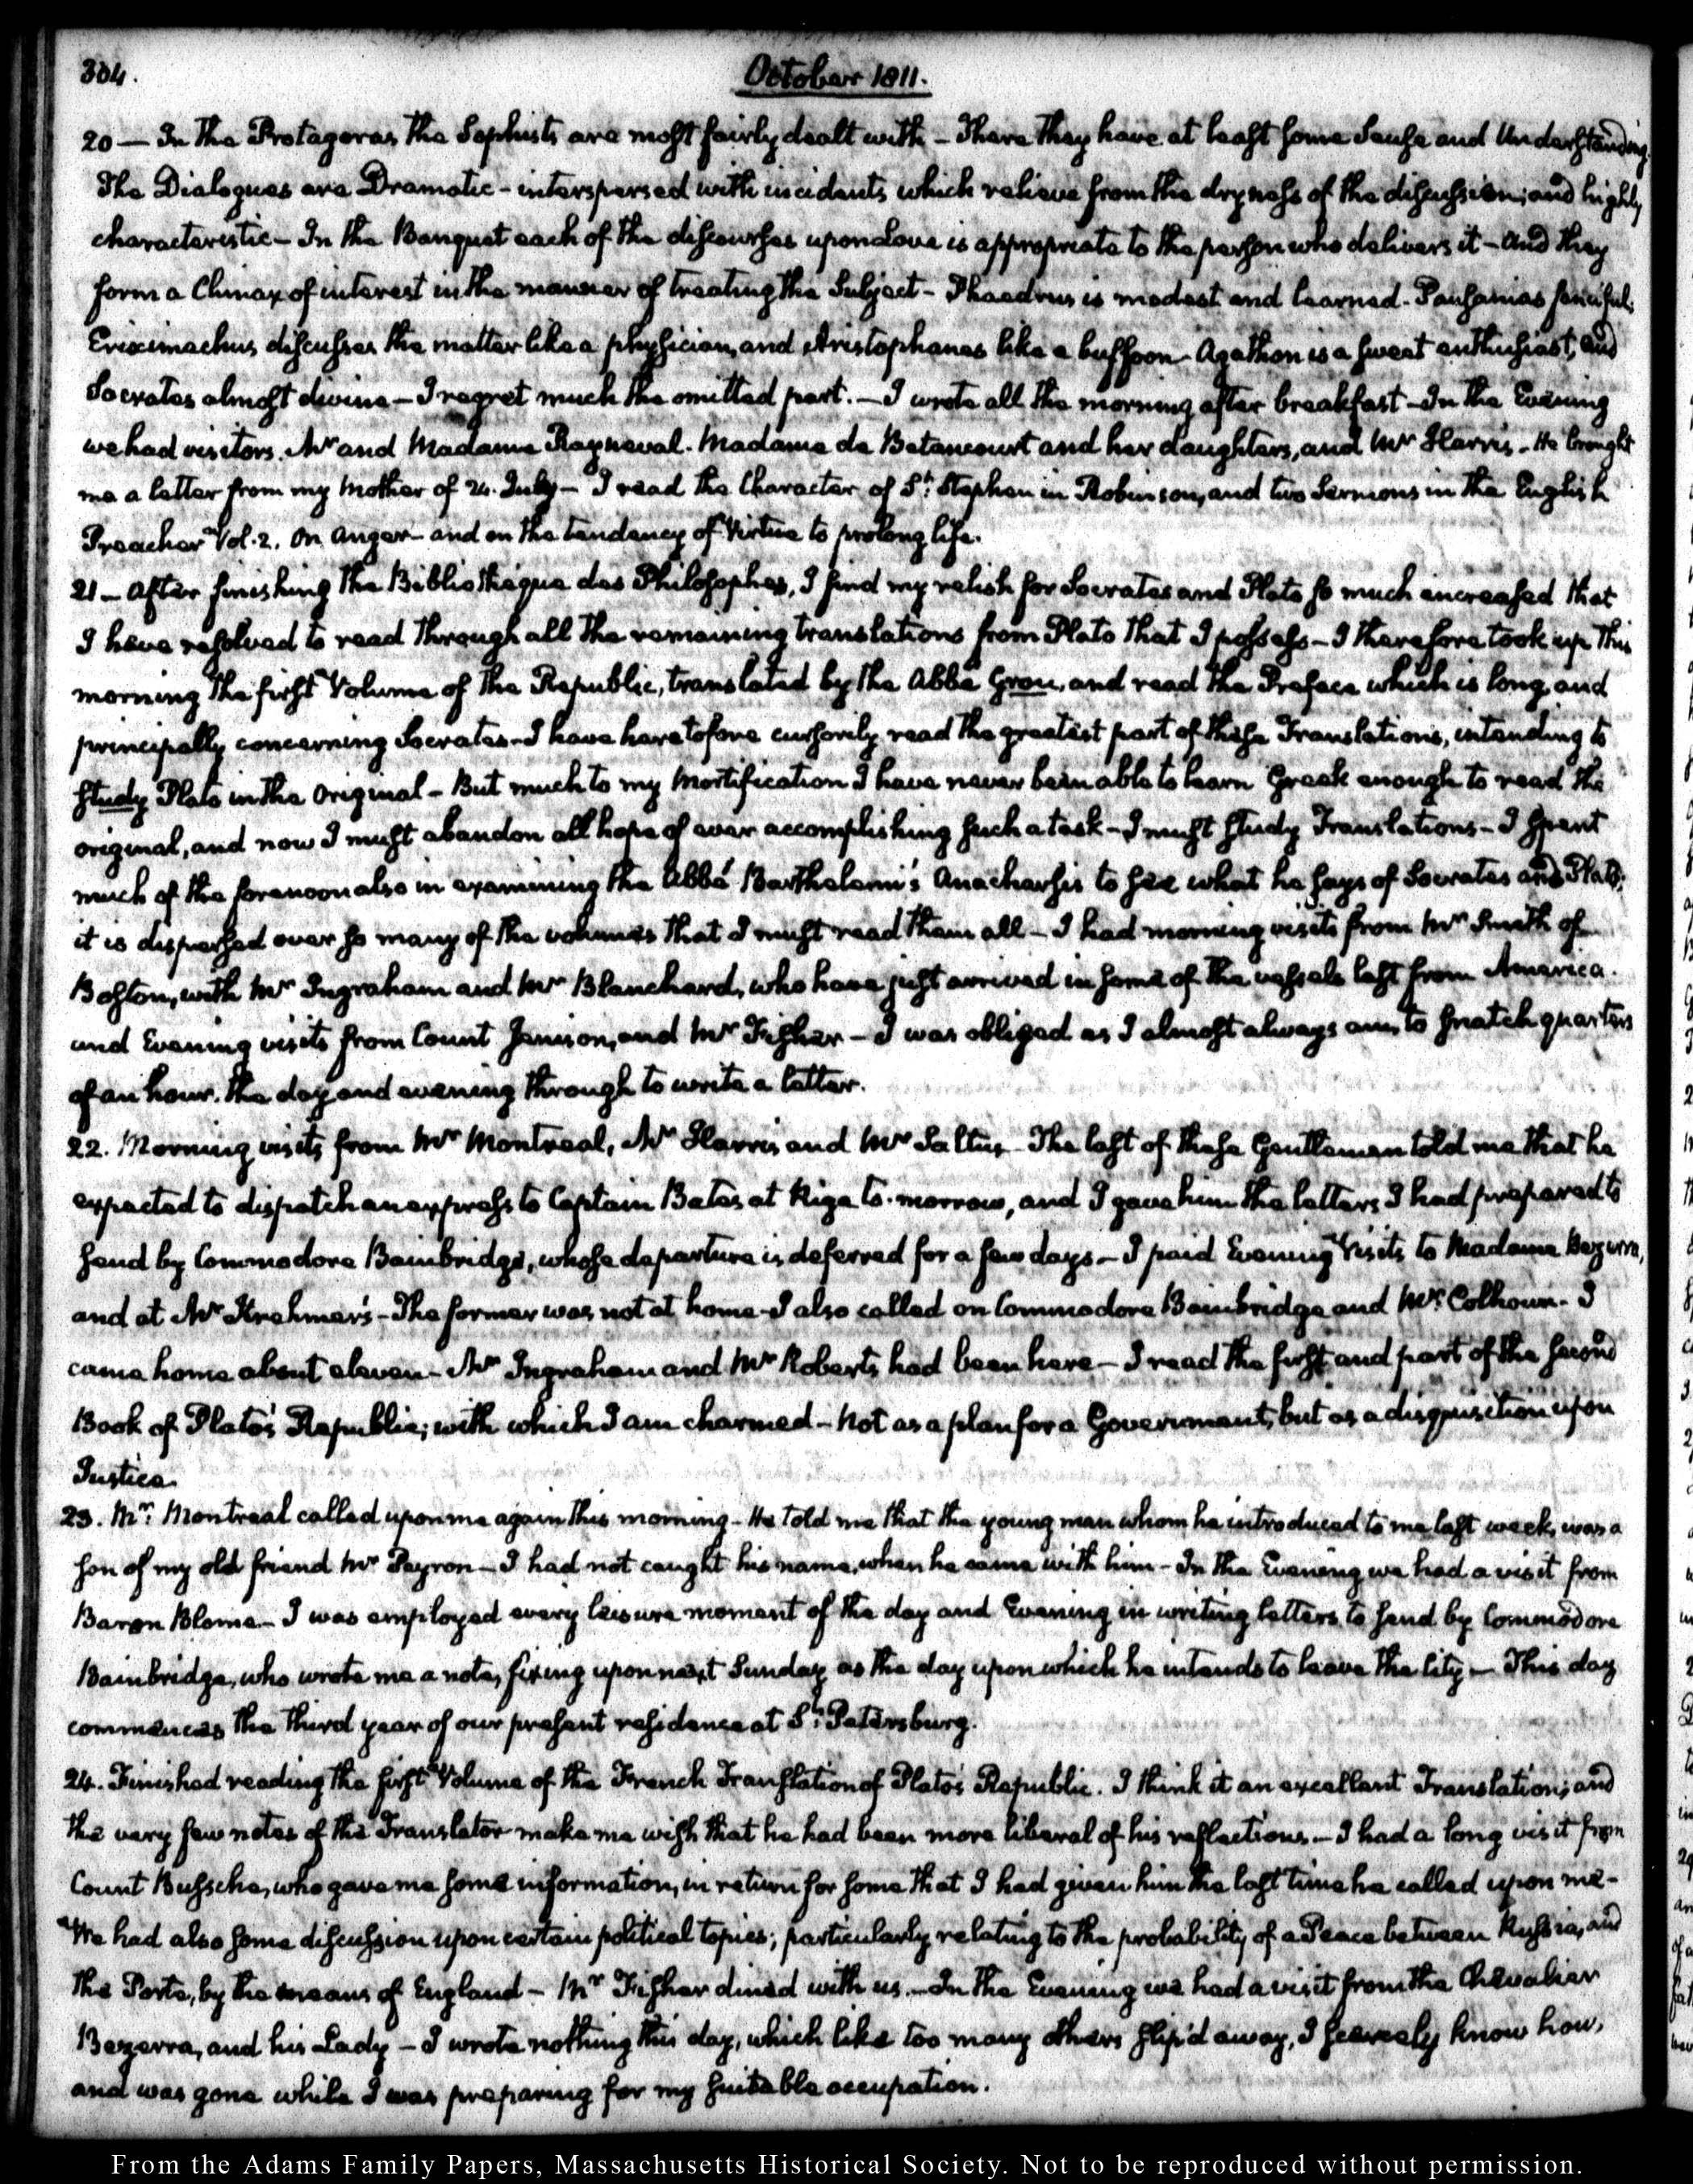 304.
October 1811.
20 — In the Protagoras the Sophists are most fairly dealt with – There they have at least some Sense and Understanding.
The Dialogues are Dramatic – interspersed with incidents which relieve from the dryness of the discussion; and highly
characteristic – In the Banquet each of the discourses upon Love is appropriate to the person who delivers it – and they
form a Climax of interest in the manner of treating the Subject – Phaedrus is modest and learned – Pausanias fanciful;
Eriximachus discusses the matter like a physician, and Aristophanes like a buffoon – Agathon is a sweet enthusiast, and
Socrates almost divine – I regret much the omitted part. – I wrote all the morning after breakfast – In the Evening
we had visitors. Mr and Madame Rayneval. Madame de Betancourt and her daughters, and Mr Harris – He brought
me a letter from my Mother of 24. July – I read the Character of St. Stephen in Robinson, and two Sermons in the English
Preacher Vol. 2. On Anger – and on the tendency of Virtue to prolong life.
21 – After finishing the Bibliothèque des Philosophes, I find my relish for Socrates and Plato so much increased that
I have resolved to read through all the remaining translations from Plato that I possess – I therefore took up this
morning the first Volume of the Republic, translated by the Abbé Grou, and read the Preface which is long, and
principally concerning Socrates – I have heretofore cursorily read the greatest part of these Translations, intending to
study Plato in the Original – But much to my Mortification I have never been able to learn Greek enough to read the
original, and now I must abandon all hope of ever accomplishing such a task – I must study Translations – I spent
much of the forenoon also in examining the Abbé Barthelemi's Anacharsis to see what he says of Socrates and Plato;
it is dispersed over so many of the volumes that I must read them all – I had morning visits from Mr Smith of
Boston, with Mr Ingraham and Mr Blanchard, who have just arrived in some of the vessels last from America.
and Evening visits from Count Jennison, and Mr Fisher – I was obliged as I almost always am, to snatch quarters
of an hour. the day and evening through to write a letter.
22. Morning visits from Mr Montreal, Mr Harris and Mr Saltus – The last of these Gentlemen told me that he
expected to dispatch an express to Captain Bates at Riga to-morrow, and I gave him the letters I had prepared to
send by Commodore Bainbridge, whose departure is deferred for a few days – I paid Evening Visits to Madame Bezerra,
and at Mr Krehmer's – The former was not at home – I also called on Commodore Bainbridge and Mr Colhoun – I
came home about eleven – Mr Ingraham and Mr Roberts had been here – I read the first and part of the second
Book of Plato's Republic; with which I am charmed – Not as a plan for a Government, but as a disquisition upon
Justice.
23. Mr. Montreal called upon me again this morning – He told me that the young man whom he introduced to me last week, was a
son of my old friend Mr Peyron – I had not caught his name, when he came with him – In the Evening we had a visit from
Baron Blome – I was employed every leisure moment of the day and Evening in writing letters to send by Commodore
Bainbridge, who wrote me a note, fixing upon next Sunday as the day upon which he intends to leave the City – This day
commences the third year of our present residence at St. Petersburg.
24. Finished reading the first Volume of the French Translation of Plato's Republic. I think it an excellent Translation; and
the very few notes of the Translator make me wish that he had been more liberal of his reflections – I had a long visit from
Count Bussche, who gave me some information, in return for some that I had given him the last time he called upon me –
We had also some discussion upon certain political topics; particularly relating to the probability of a Peace between Russia, and
the Porte, by the means of England – Mr Fisher dined with us. – In the Evening we had a visit from the Chevalier
Bezerra, and his Lady – I wrote nothing this day, which like too many others slip'd away, I scarcely know how,
and was gone while I was preparing for my suitable occupation.
From the Adams Family Papers, Massachusetts Historical Society. Not to be reproduced without permission.